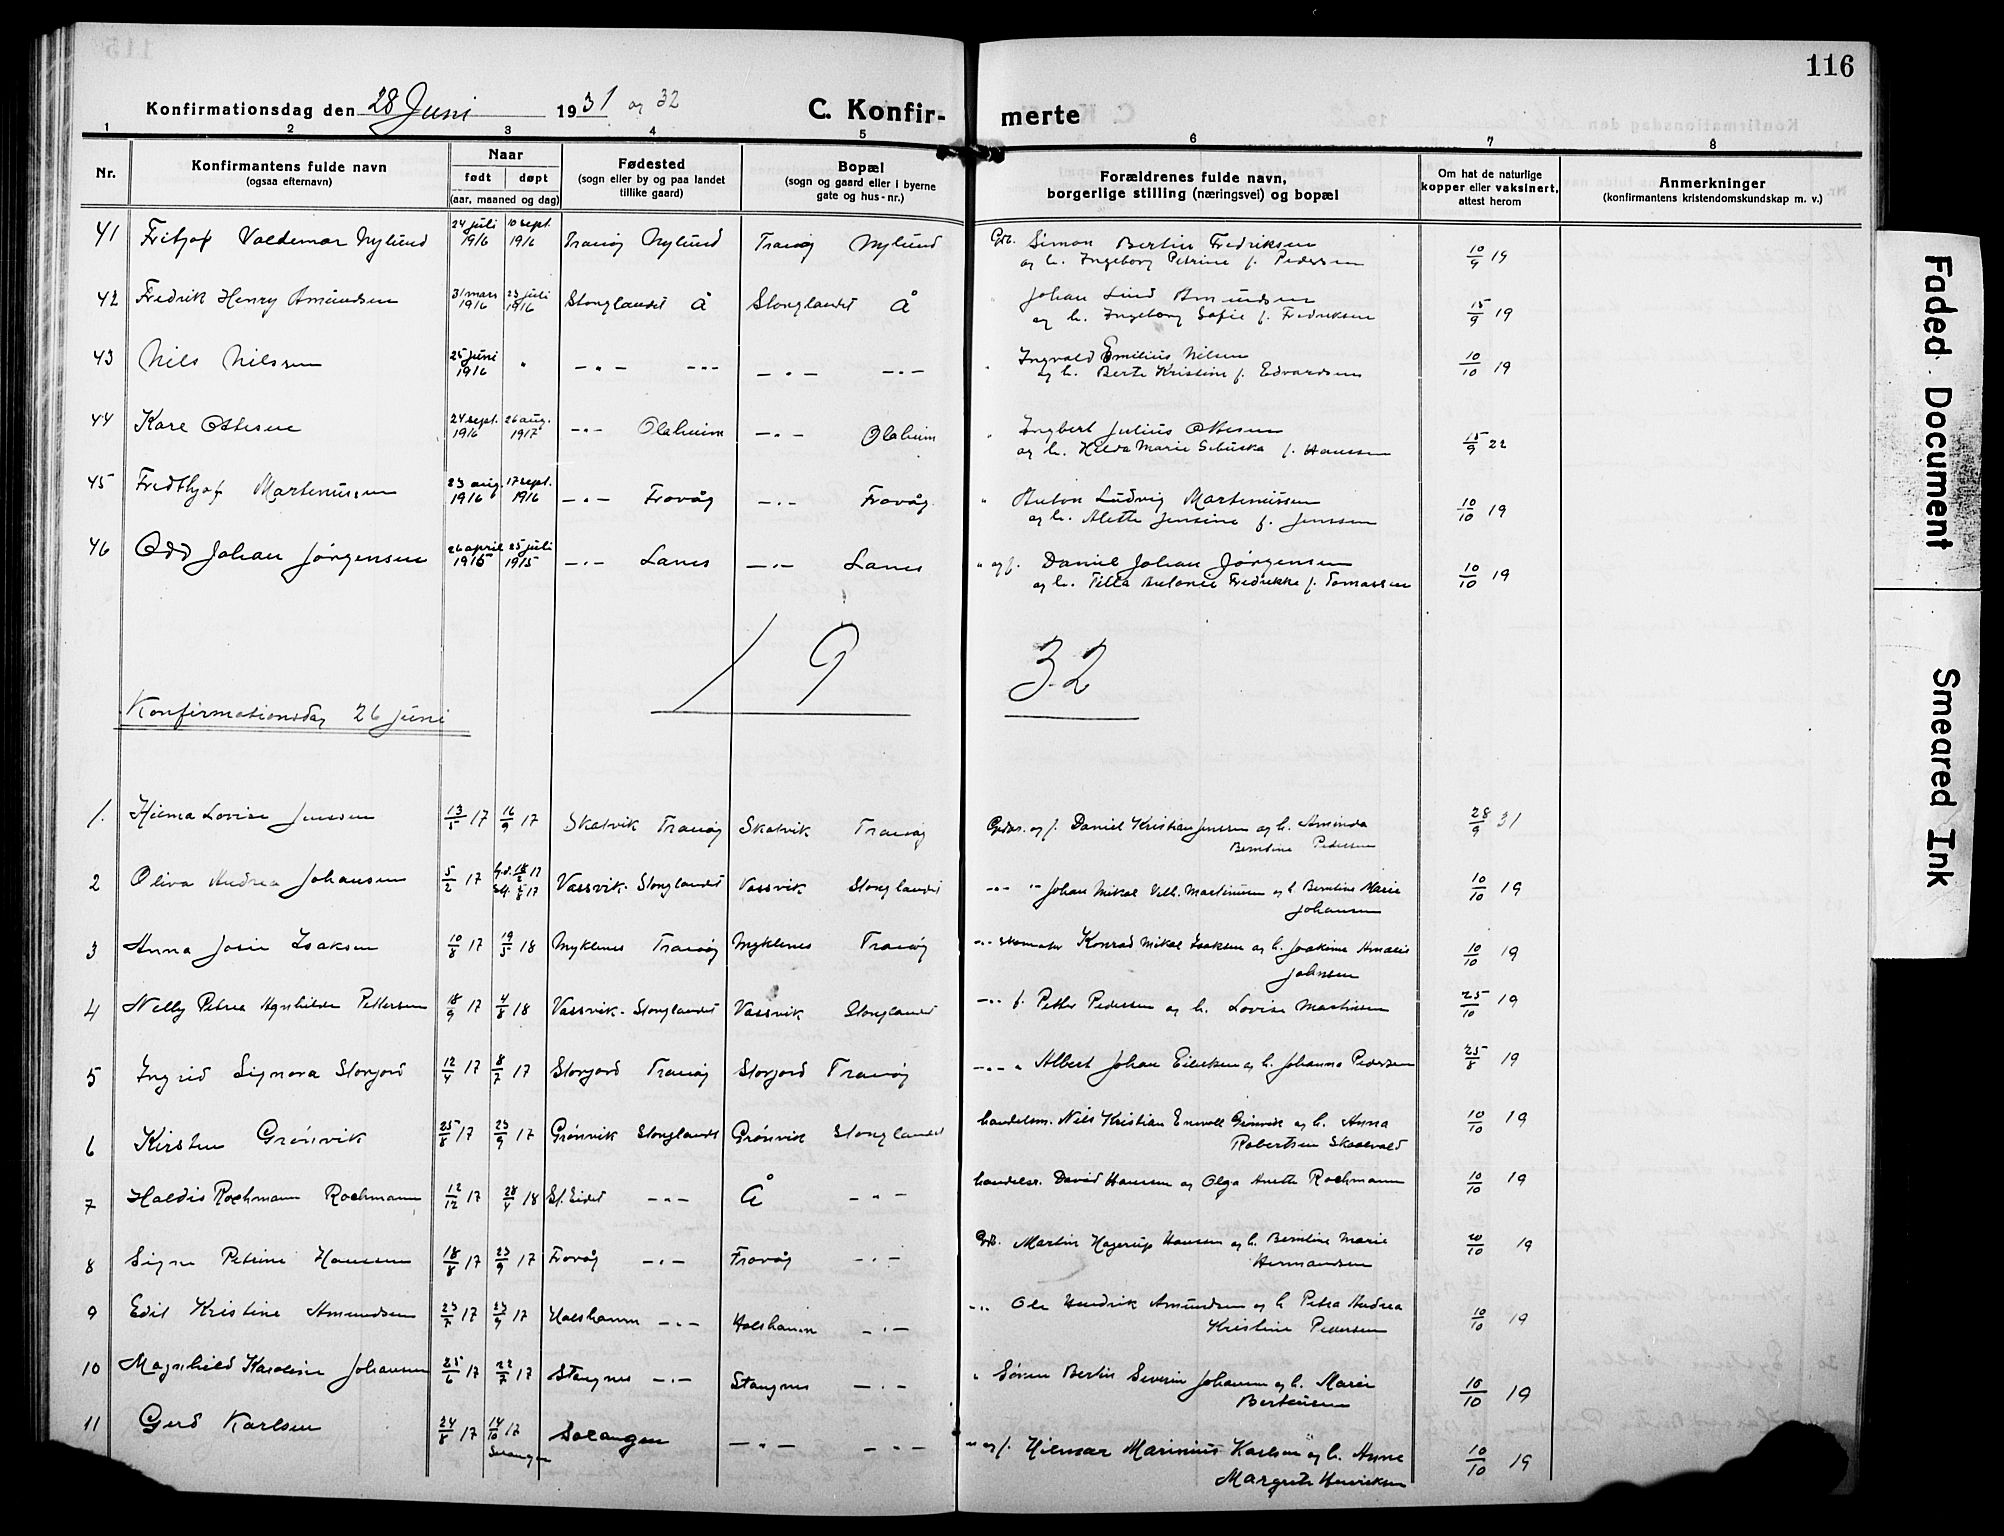 116
Konfirmationsdag den 28 Juni 1931 og 32
C. Konfirmerte
1 2 3 4 5 6 7 8
Nr.
Konfirmantens fulde navn
(ogsaa efternavn)
Naar
født døpt
(aar, maaned og dag)
Fødested
(sogn eller by og paa landet
tillike gaard)
Bopæl
(sogn og gaard eller i byerne
gate og hus-nr.)
Forældrenes fulde navn,
borgerlige stilling (næringsvei) og bopæl
Om hat de naturlige
kopper eller vaksinert,
attest herom
Anmerkninger
(konfirmantens kristendomskundskap m. v.)
41 Fritjof Valdemar Nylund 24 juli 1916 10 sept. 1916 Tranøy Nylund Tranøy Nylund Gbr. Simon Bertin Fredriksen 10/9 19
og h. Ingeborg Petrine f. Pedersen
42 Fredrik Henry Amundsen 31 mars 1916 23 juli 1916 Stonglandet Å Stonglandet Å " Johan Lind Amundsen 15/9 19
og h. Ingeborg Sofie f. Fredriksen
43 Nils Nilssen 25 juni 1916 " –"– –"– –"– –"– " Ingvald Emilius Nilsen 10/10 19
og h. Berte Kristine f. Edvardsen
44 Kåre Ottesen 24 sept. 1916 26 aug. 1917 –"– Olaheim –"– Olaheim " Ingbert Julius Ottesen 15/9 22
og h. Hilda Marie f. Hanssen
45 Fredthjof Martenussen 23 aug. 1916 17 sept. 1916 –"– Frovåg –"– Frovåg " Anton Ludvig Martenussen 10/10 19
og h. Alette Jensine f. Jenssen
46 Odd Johan Jørgensen 26 april 1915 25 juli 1915 –"– Lanes –"– Lanes " og f. Daniel Johan Jørgensen 10/10 19
og h. Tilla Antonie Fredrikke f. Tomassen
19 32
Konfirmationsdag 26 juni
1. Hilma Lovise Jenssen 13/5 17 16/9 17 Skatvik Tranøy Skatvik Tranøy og f. Daniel Kristian Jenssen og h. Aminda 28/9 31
Berntine Pedersen
2 Oliva Andrea Johansen 5/2 17 Vassvik Stonglandet Vassvik Stonglandet –"– " Johan Mikal Vilh. Martinusen og h Berntine Marie 10/10 19
Johansen
3 Anna Josie Isaksen 10/8 17 19/5 18 Myklenes Tranøy Myklenes Tranøy –"– skomaker Konrad Mikal Isaksen og h. Joakime Amalie 10/10 19
Johnsen
4 Nelly Petrea Agnhilde Pettersen 18/9 17 4/8 18 Vassvik Stonglandet Vassvik Stonglandet –"– f. Petter Pedersen og h. Lovise Martinsen 25/10 19
5 Ingrid Signora Storjord 12/4 17 8/7 17 Storjord Tranøy Storjord Tranøy –"– " Albert Johan Eilertsen og h. Johanna Pedersen 25/8 19
6 Kirsten Grønvik 25/8 17 23/9 17 Grønvik Stonglandet Grønvik Stonglandet handelsm. Nils Kristian Enevold Grønvik og h. Anna 10/10 19
Robertsen Skaalvold
7 Haldis Rochmann Rochmann 12/12 17 28/4 18 St. Eidet –"– Å –"– handelsr. David Hansen og Olga Anette Rochmann 10/10 19
8 Signe Petrine Hanssen 18/8 17 23/9 17 Frovåg –"– Frovåg –"– Gbr. Martin Hagerup Hansen og h. Berntine Marie 20/10 19
Hermandsen
9 Edit Kristine Amundsen 23/7 17 23/9 17 Halshamn –"– Halshamn –"– –"– Ole Hendrik Amundsen og h Petra Andrea 10/10 19
Kristine Pedersen
10 Magnhild Karoline Johansen 25/6 17 22/7 17 Stangnes –"– Stangnes –"– " Søren Bertin Severin Johansen og h. Marie 10/10 19
Berteusen
11 Gerd Karlsen 24/8 17 14/10 17 Salangen Salangen –"– –"– " og f. Hilmar Marinius Karlsen og h. Anna 10/10 19
Margrete Henriksen
Faded Document
Smeared Ink